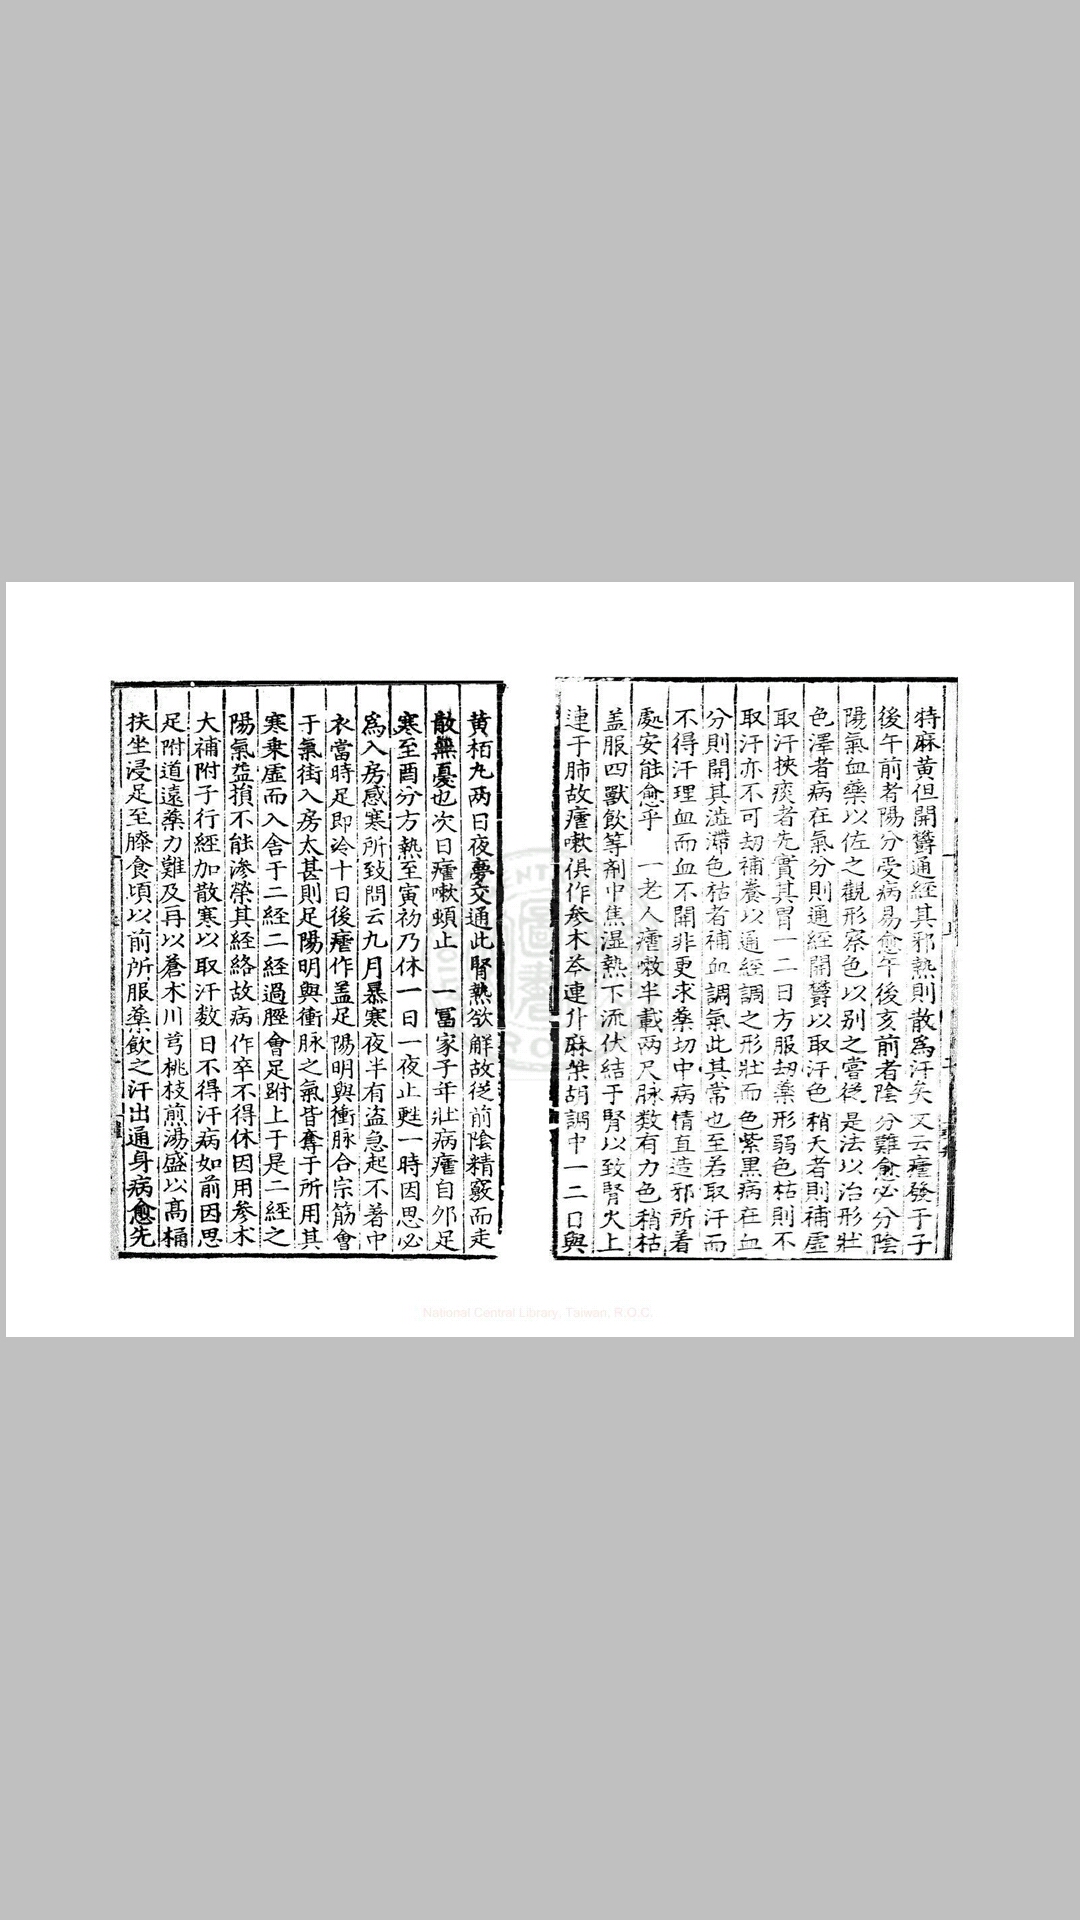 特麻黄但開欝通經其邪熱則散爲汗矣又云瘧發于子
後午前者陽分受病易愈午後亥前者陰分難愈必分陰
陽氣血藥以佐之觀形察色以别之嘗從是法以治形壯
色澤者病在氣分則通經開欝以取汗色稍夭者則補虚
取汗挾痰者先實其胃一二日方服刼藥形弱色枯則不
取汗亦不可刼補養以通經調之形壯而色紫黒病在血
分則開其澁滯色枯者補血調氣此其常也至若取汗而
不得汗理血而血不開非更求藥切中病情直造邪所着
處安能愈乎 一老人瘧嗽半載两尺脉数有力色稍枯
盖服四獸飲等劑中焦湿熱下流伏結于腎以致腎火上
連于肺故瘧嗽俱作參术芩連升麻柴胡調中一二日與
黄栢九两日夜夢交通此腎熱欲解故従前陰精竅而走
散無憂也次日瘧嗽頓止 一冨家子年壯病瘧自夘足
寒至酉分方熱至寅初乃休一日一夜止甦一時因思必
爲入房感寒所致問云九月暴寒夜半有盗急起不著中
衣當時足即冷十日後瘧作盖足陽明與衝脉合宗筋會
于氣街入房太甚則足陽明與衝脉之氣皆奪于所用其
寒乗虚而入舍于二經二經過脛會足跗上于是二經之
陽氣益損不能滲榮其經絡故病作卒不得休因用參术
大補附子行經加散寒以取汗数日不得汗病如前因思
足附道遠藥力難及再以蒼术川芎桃枝煎湯盛以髙桶
扶坐浸足至膝食頃以前所服藥飲之汗出通身病愈先
National Central Library, Taiwan, R.O.C.